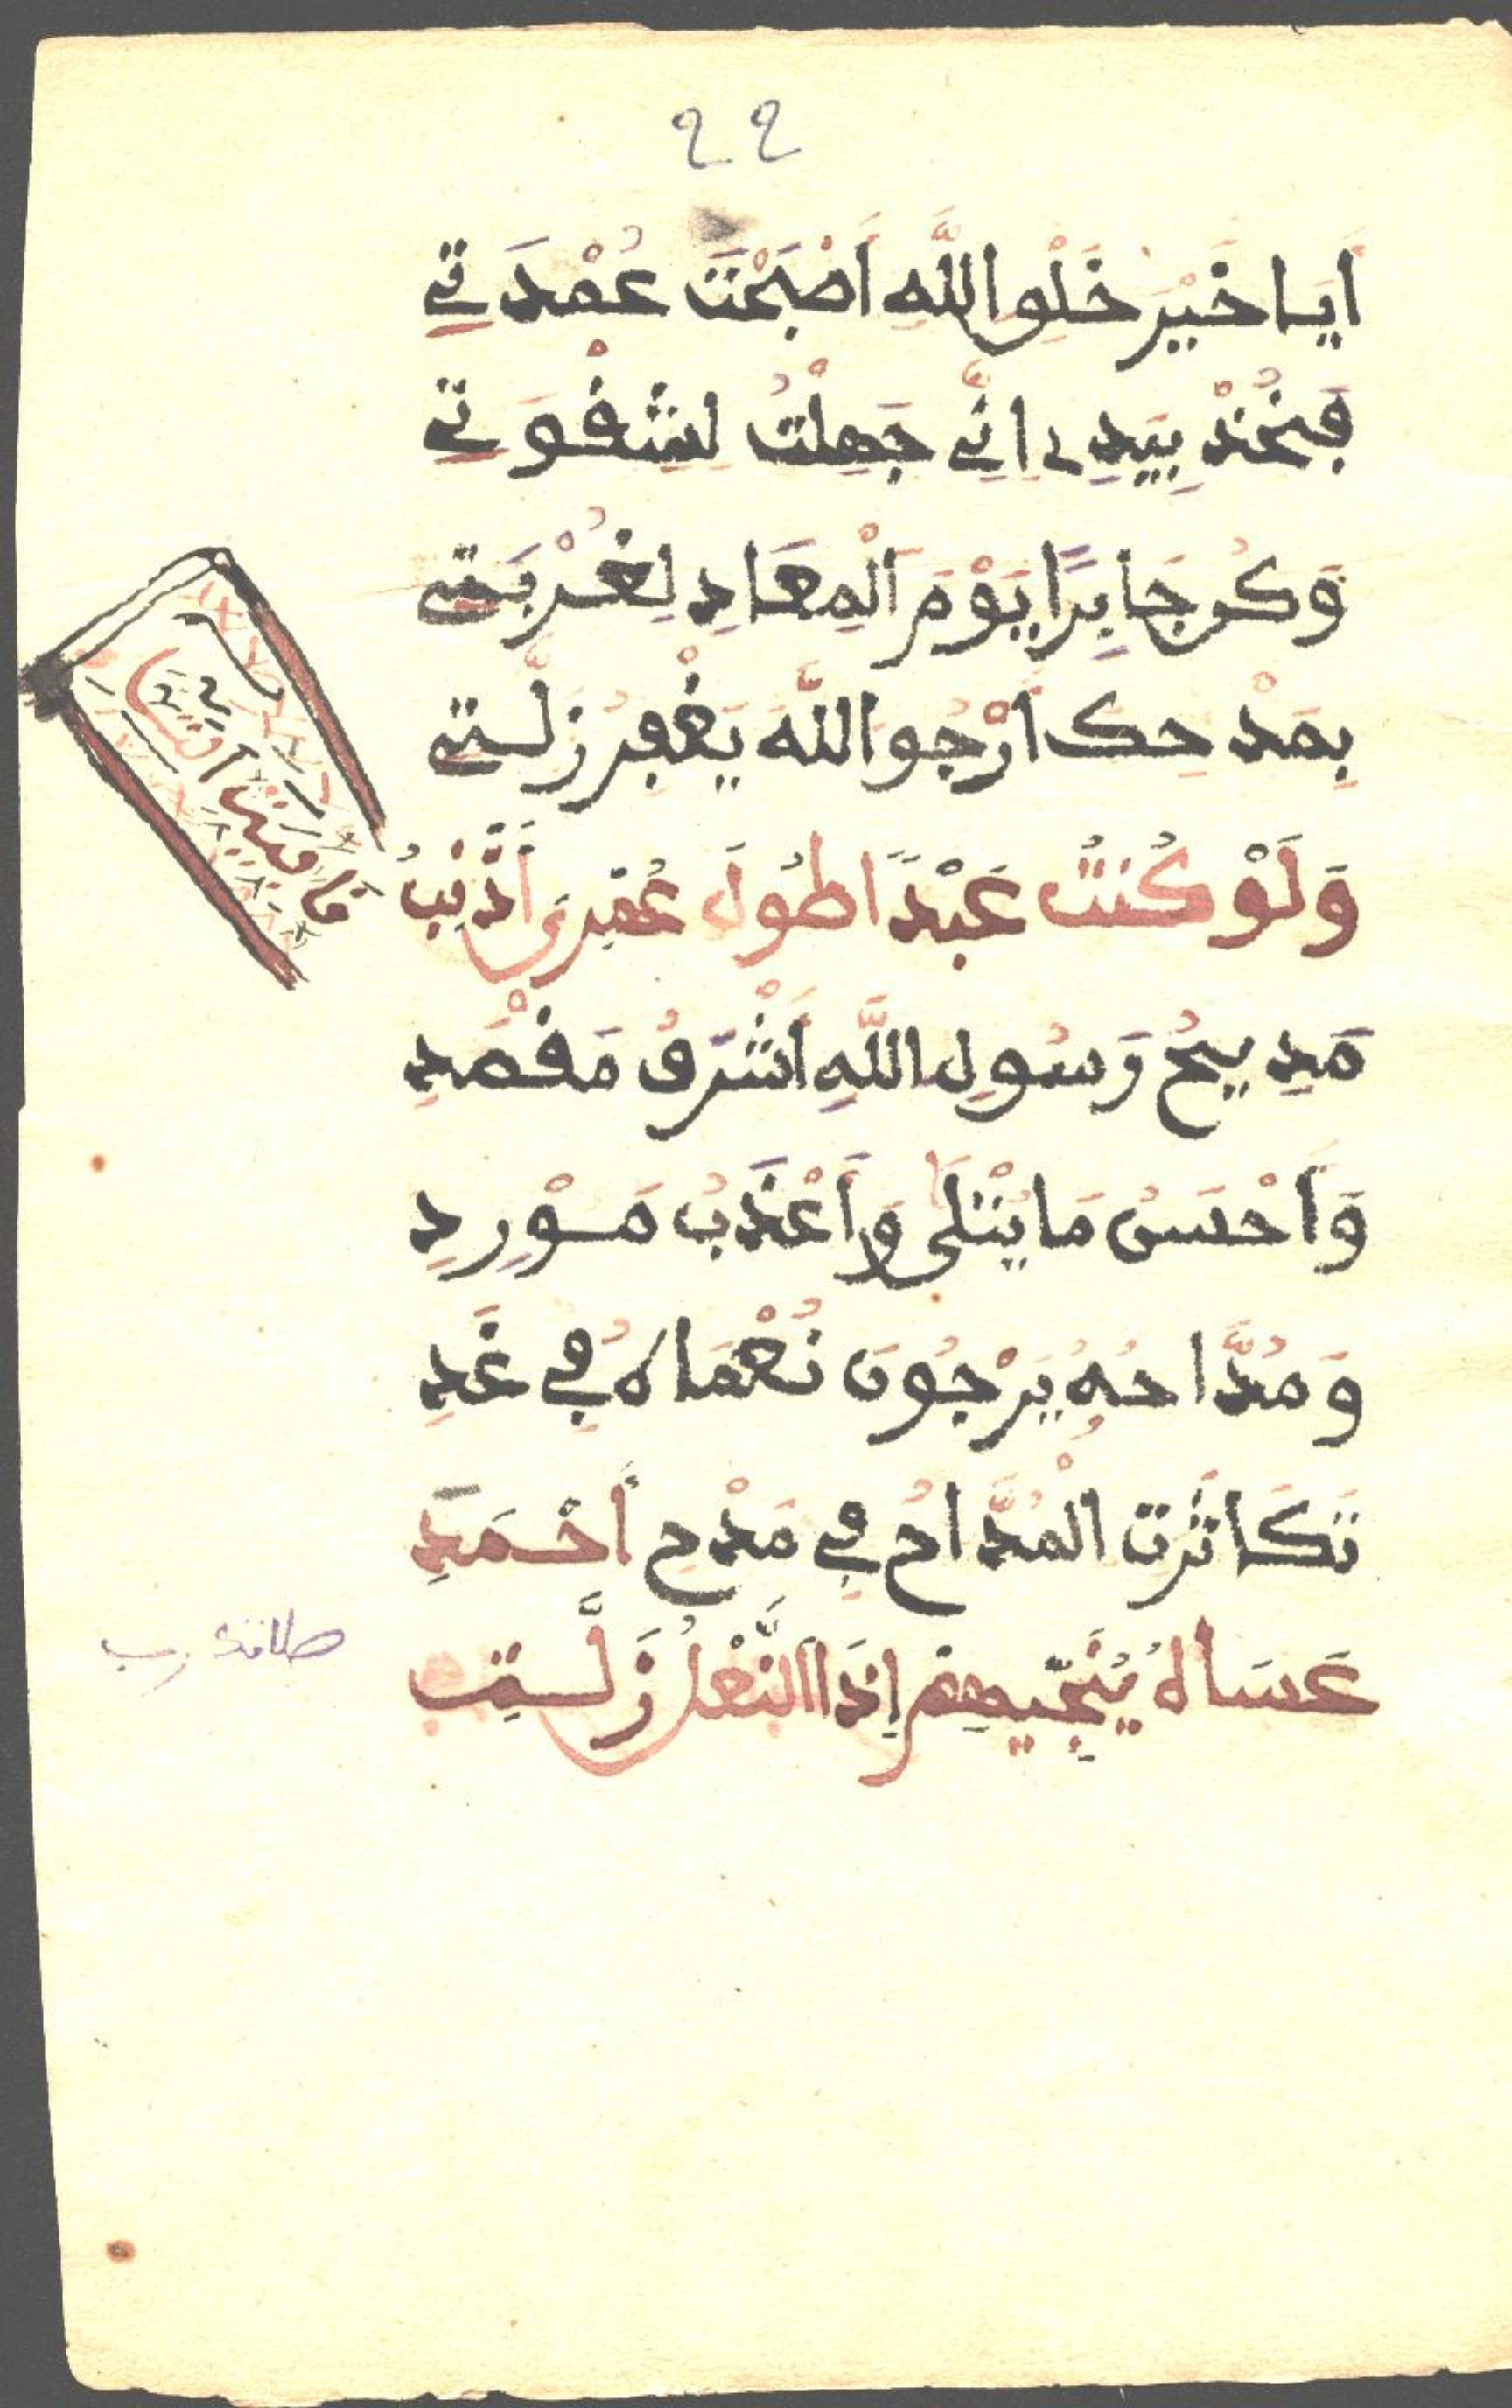 ٢٢
أَيَا خَيْرَ خَلْقِ اللَّهِ أَصْبَحْتَ عُمْدَتِي
فَخُذْ بِيَدِي إِنِّي جَهِلْتُ لِشِقْوَتِي
وَكُن جَابِرًا يَوْمَ الْمِعَادِ لِغُرْبَتِي
بِمَدْحِكَ أَرْجُوا اللَّهَ يَغْفِرُ زَلَّتِي
وَلَوْ كُنتُ عَبْدًا طُولَ عُمْرِىَ أَذْنِبُ
مَدِيحُ رَسُولِ اللَّهِ أَشْرَفُ مَقْصَدِ
وَأَحْسَنُ مَا يُتْلَى وَأَعْذَبُ مَوْرِدِ
وَمُدَّاحُهُ يَرْجُونَ نُعْمَاهُ فِي غَدِ
تَكَاثَرَتِ الْمُدَّاحُ فِي مَدْحِ أَحْمَدِ
عَسَاهُ يُنَجِّيهِمْ إِذَا النَّعْلُ زَلَّتِ